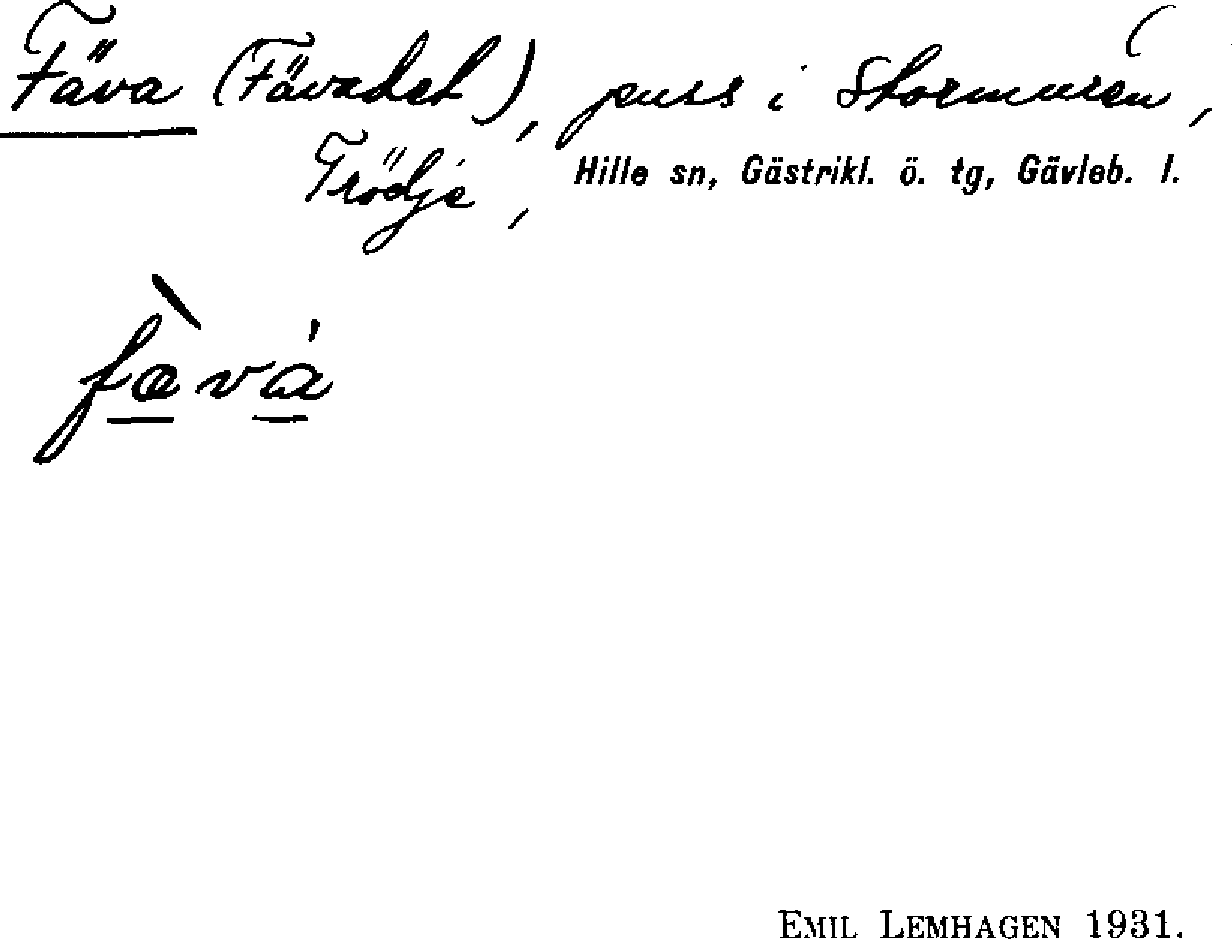 Fäva (Fävadet), puss i Stormuren,
Trödje, Hille sn, Gästrikl. ö. tg, Gävleb. l.
fæ̀vá
EMIL LEMHAGEN 1931.